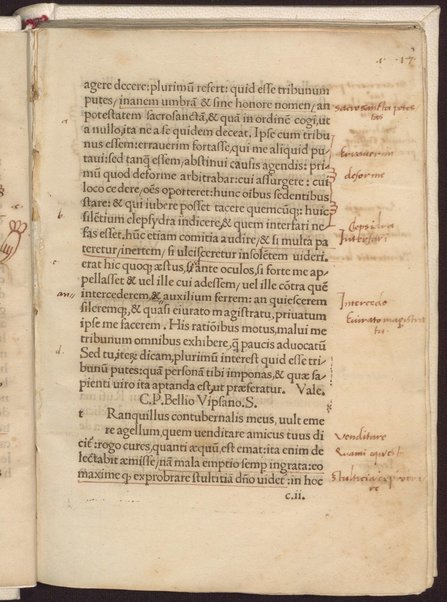 17
agere decere: plurimũ refert: quid esse tribunum
putes/inanem umbrã & sine honore nomen/an
potestatem sacrosanctã, & quã in ordinẽ cogi, ut
a nullo, ita ne a se quidem deceat. Ipse cum tribu
nus essem: erraverim fortasse, qui me aliquid pu
taui: sed tanq̃ essem, abstinui causis agendis: pri
mũ quod deforme arbitrabar: cui assurgere: cui
loco cedere, oẽs oporteret: hunc oibus sedentibus
stare: & qui iubere posset tacere quemcũq;: huic
silẽtium clepsydra indicere, & quem interfari ne
fas esset. hũc etiam conuitia audire/& si multa pa
teretur/inertem/si ulcisceretur insolẽtem uideri.
erat hic quoq; æstus, si ante oculos, si forte me ap
pellasset & uel ille cui adessem/uel ille cõtra quẽ
intercederem, & auxilium ferrem: an quiescerem
sileremq;, & quasi eiurato magistratu, priuatum
ipse me facerem. His ratiõibus motus, malui me
tribunum omnibus exhibere, q̃ paucis aduocatũ
Sed tu, iteʒ dicam, plurimũ interest quid esse tri-
bunũ putes: quã personã tibi imponas, & quæ sa-
pienti uiro ita aptanda est, ut præferatur. Vale.
C. P. Bellio Vipsano. S.
t Ranquillus contubernalis meus, uult eme
re agellum, quem uenditare amicus tuus di
cit̃: rogo cures, quanti æquũ est emat: ita enim de
lectabit æmisse/nã mala emptio semp ingrata: eo
maxime q; exprobrare stultitiã dño uidet̃: in hoc
c.ii.
sacrosancta potes
tas
Erraverim
deforme
Clepsidra
Interfari
Intercedo
Eiurato magistra
tu.
an
d.
venditare
Quanti equũ est
Stulticiã exprobra
re